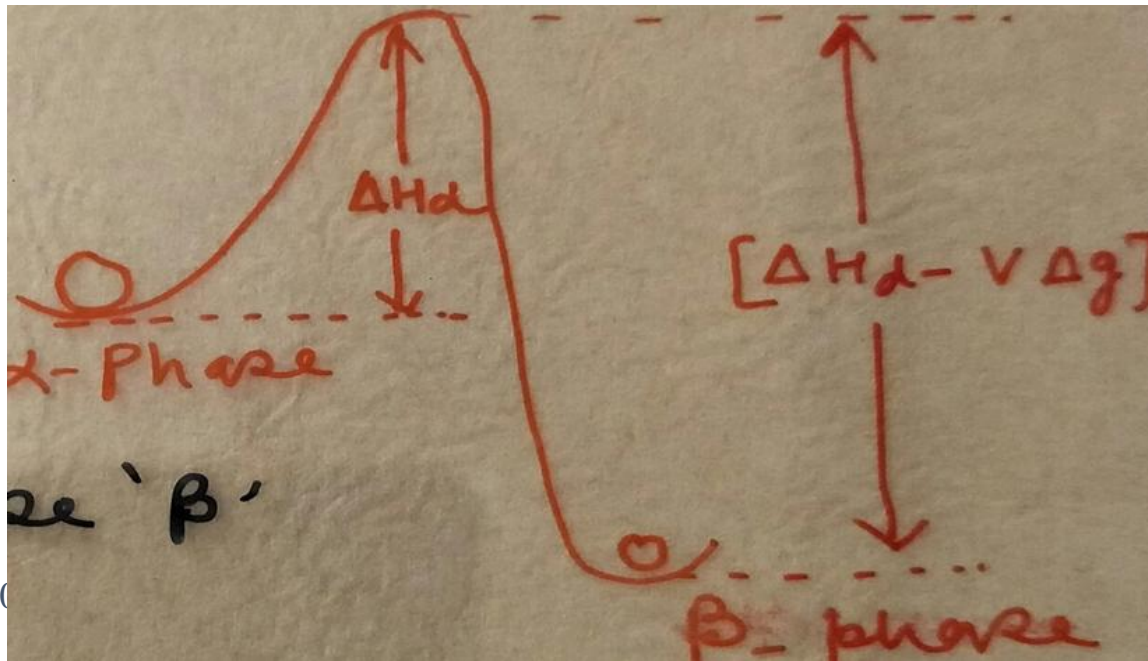 ΔHd
[ΔHd - VΔg]
α-Phase
'β'
β- phase